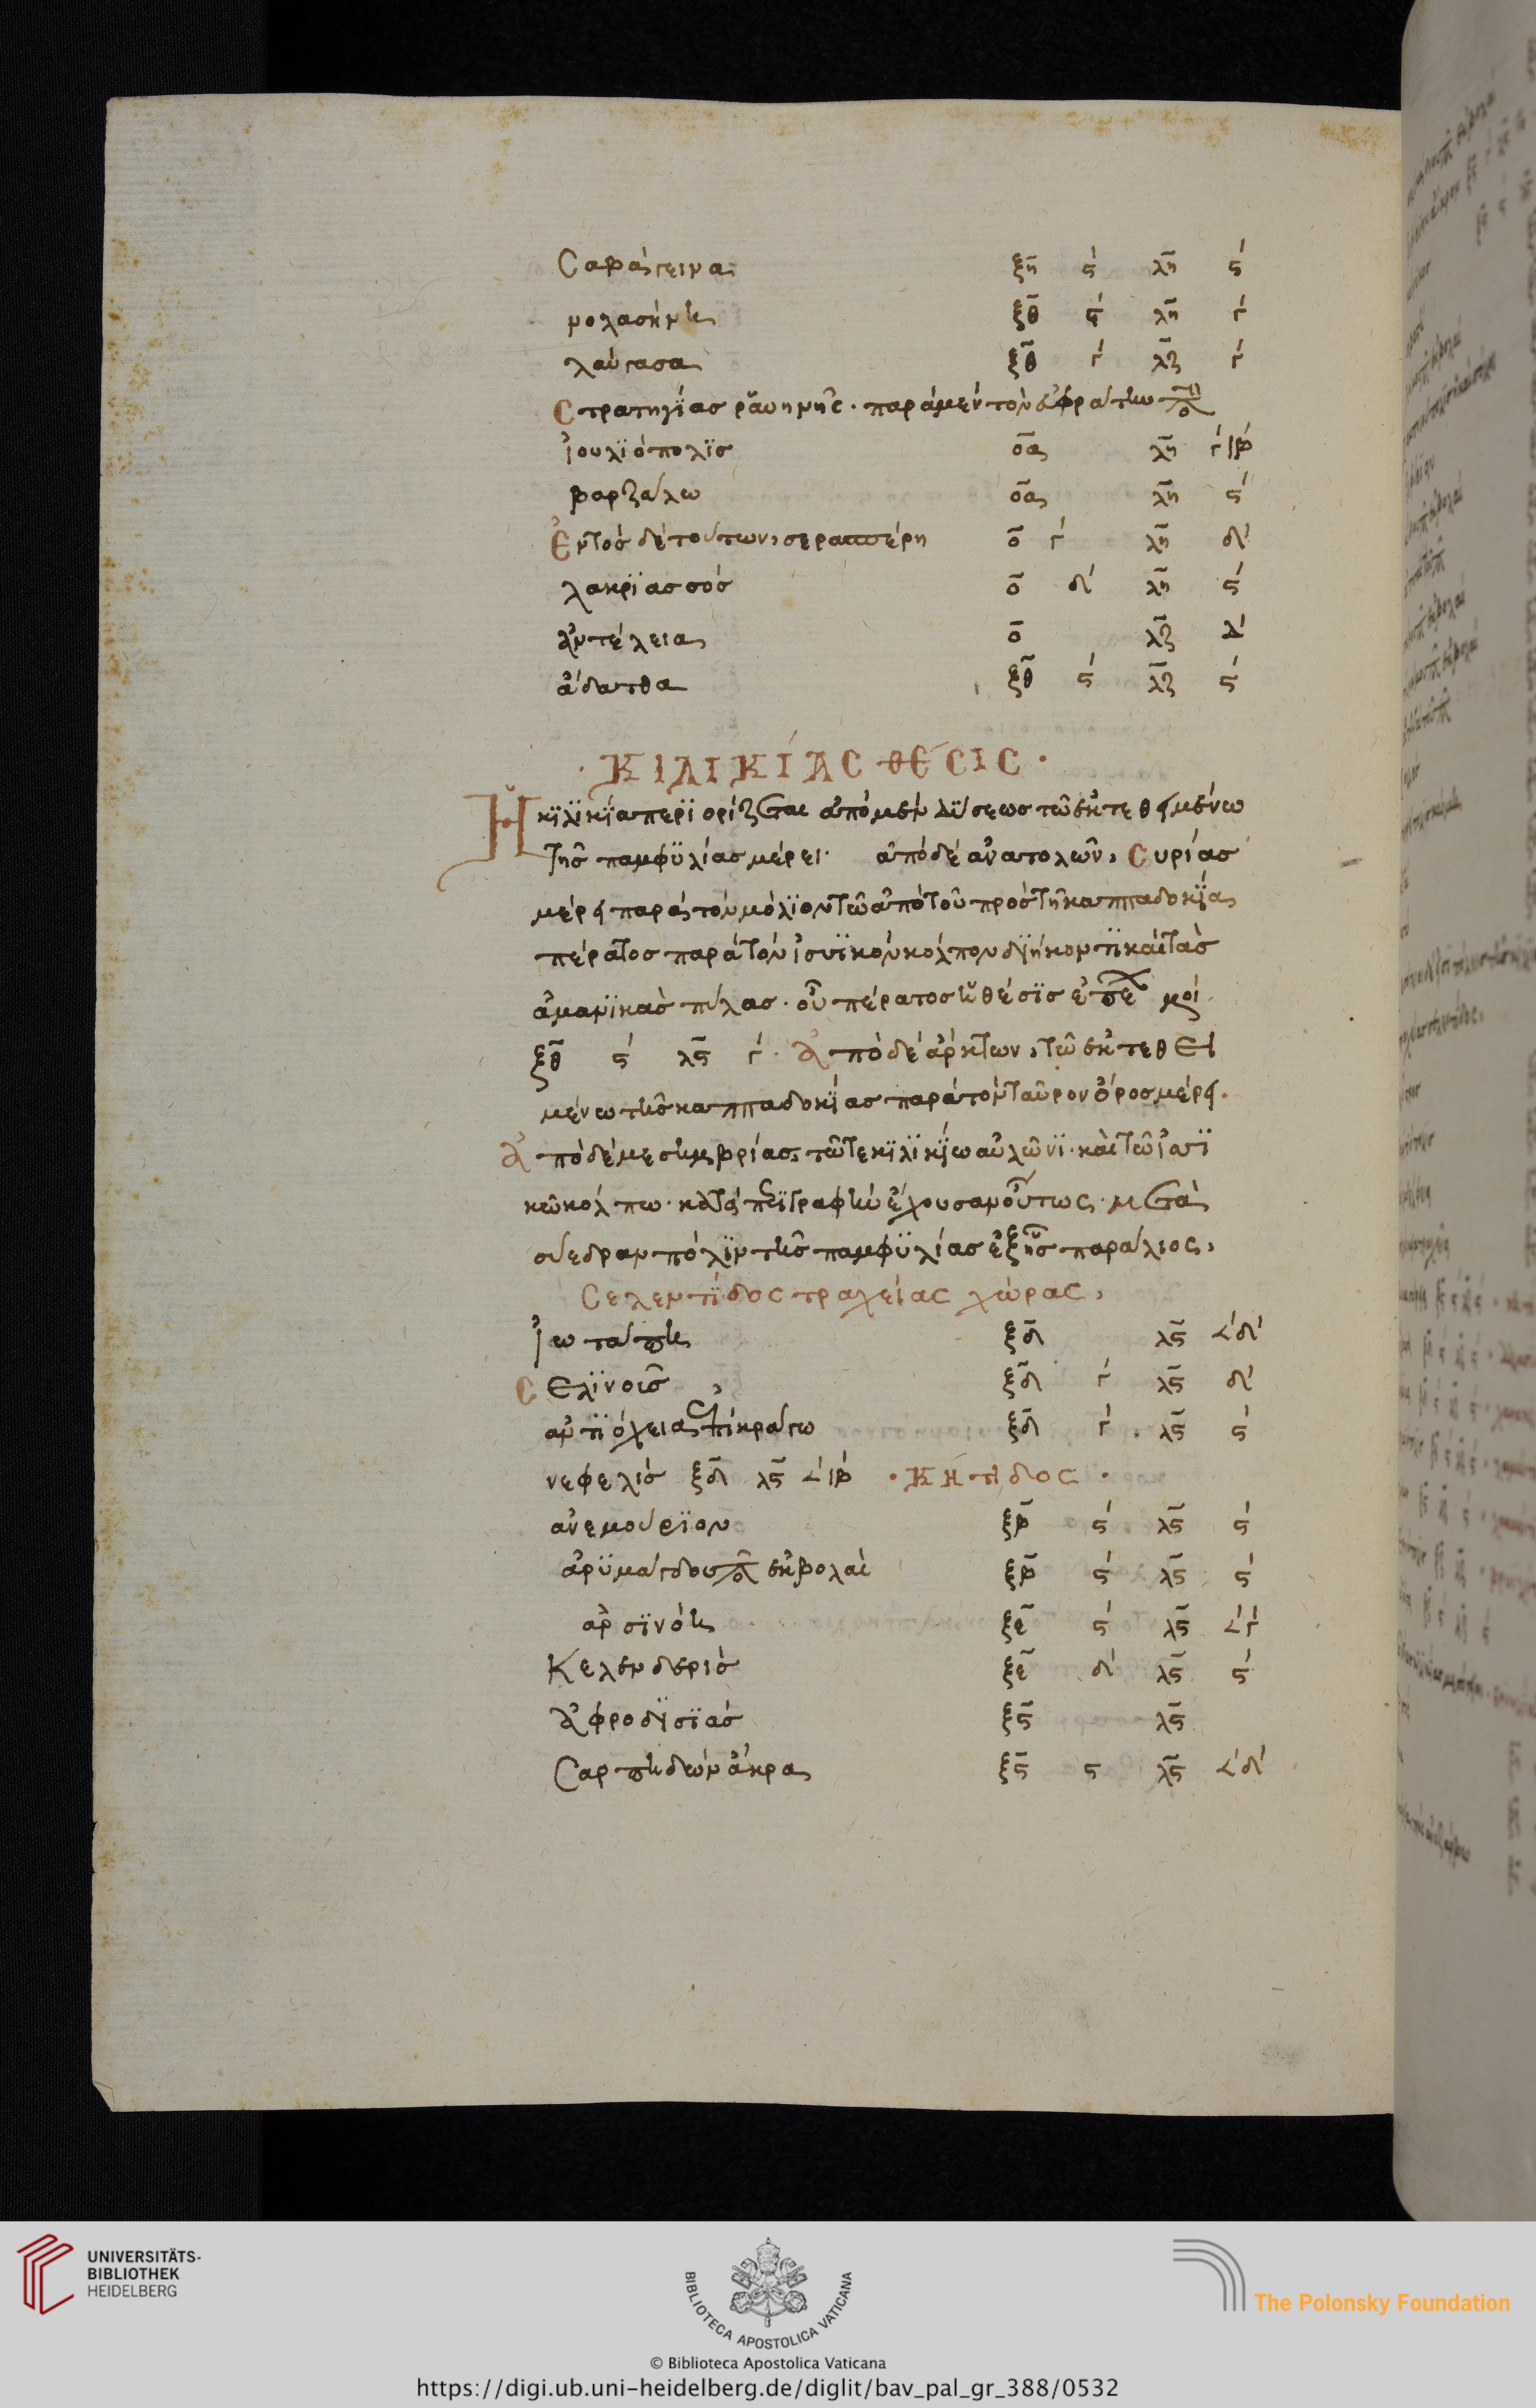 Σαβάγεινα ξη ϛ΄ λη ϛ΄
μολασήνη ξθ ϛ΄ λη γ΄
λαύγασα ξθ γ΄ λζ γ΄
Στρατηγΐας ῥαυηνῆς · παρὰ μὲν τὸν εὐφράτην
ἰουλϊόπολϊσ οα λη γ΄ιβ΄
βαρζάλω οα λη ϛ΄
Ἐντὸς δὲ τούτων, σεραπέρη ο γ΄ λη δ΄
λακρϊασσόσ ο δ΄ λη ϛ΄
ἀντέλεια ο λζ
ἄδατθα ξθ ϛ΄ λζ ϛ΄
· ΚΙΛΙΚΊΑC ΘΈCΙC ·
Ἡ κϊλϊκΐα περϊορίζεται ἀπὸ μὲν δΰσεως τῶ ἐκτεθειμένω
τῆς παμφϋλίας μέρει · ἀπὸ δὲ ἀνατολῶν, Συρίας
μέρει παρὰ τὸν μόλϊον τῶ ἀπὸ τοῦ πρὸς τῆ καππαδοκΐα
πέρατος παρὰ τὸν ἰσϊκὸν κόλπον δϊήκοντϊ καὶ τὰς
ἀμανϊκὰς πύλας · οὗ πέρατος ἡ θέσϊς ἐπέχει μοί
ξθ ϛ΄ λϛ γ΄ · Ἀπὸ δὲ ἄρκτων, τῶ ἐκτεθει
μένω τῆς καππαδοκΐας παρὰ τὸν ταῦρον ὄρος μέρει ·
Ἀπὸ δὲ μεσημβρίας, τῶ τε κϊλϊκΐω αὐλῶνϊ · καὶ τῶ ἰσϊ
κῶ κόλπω · κατὰ περϊγραφὴν ἔχουσαν οὕτως · μετὰ
σύεδραν πόλϊν τῆς παμφϋλίας ἑξῆς παράλιος,
Σελεντΐδος τραχείας χώρας,
Ἰωτάπη ξδ λϛ ∠΄δ΄
Σελϊνοῦς ξδ γ΄ λϛ δ΄
ἀντϊόχεια ἐπὶ κράγω ξδ γ΄ λϛ ϛ΄
νεφελίς ξδ λϛ ∠΄ιβ΄ · ΚΉΤΙΔΟC ·
ἀνεμούρϊον ξβ ϛ΄ λϛ ϛ΄
ἀρϋμάγδου ἐκβολαὶ ξβ ϛ΄ λϛ ϛ΄
ἀρσϊνόη ξε ϛ΄ λϛ ∠΄γ΄
Κελενδερίς ξε δ΄ λϛ ϛ΄
Ἀφροδϊσϊάς ξϛ λϛ
Σαρπηδὼν ἄκρα ξϛ ϛ λϛ ∠΄δ΄
UNIVERSITÄTS-
BIBLIOTHEK
HEIDELBERG
BIBLIOTECA APOSTOLICA VATICANA
The Polonsky Foundation
© Biblioteca Apostolica Vaticana
https://digi.ub.uni-heidelberg.de/diglit/bav_pal_gr_388/0532